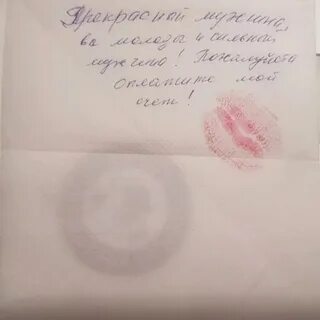 Прекрасной мужчина,
вы молоды и сильный
мужчина! Пожалуйста
оплатите мой
счет!